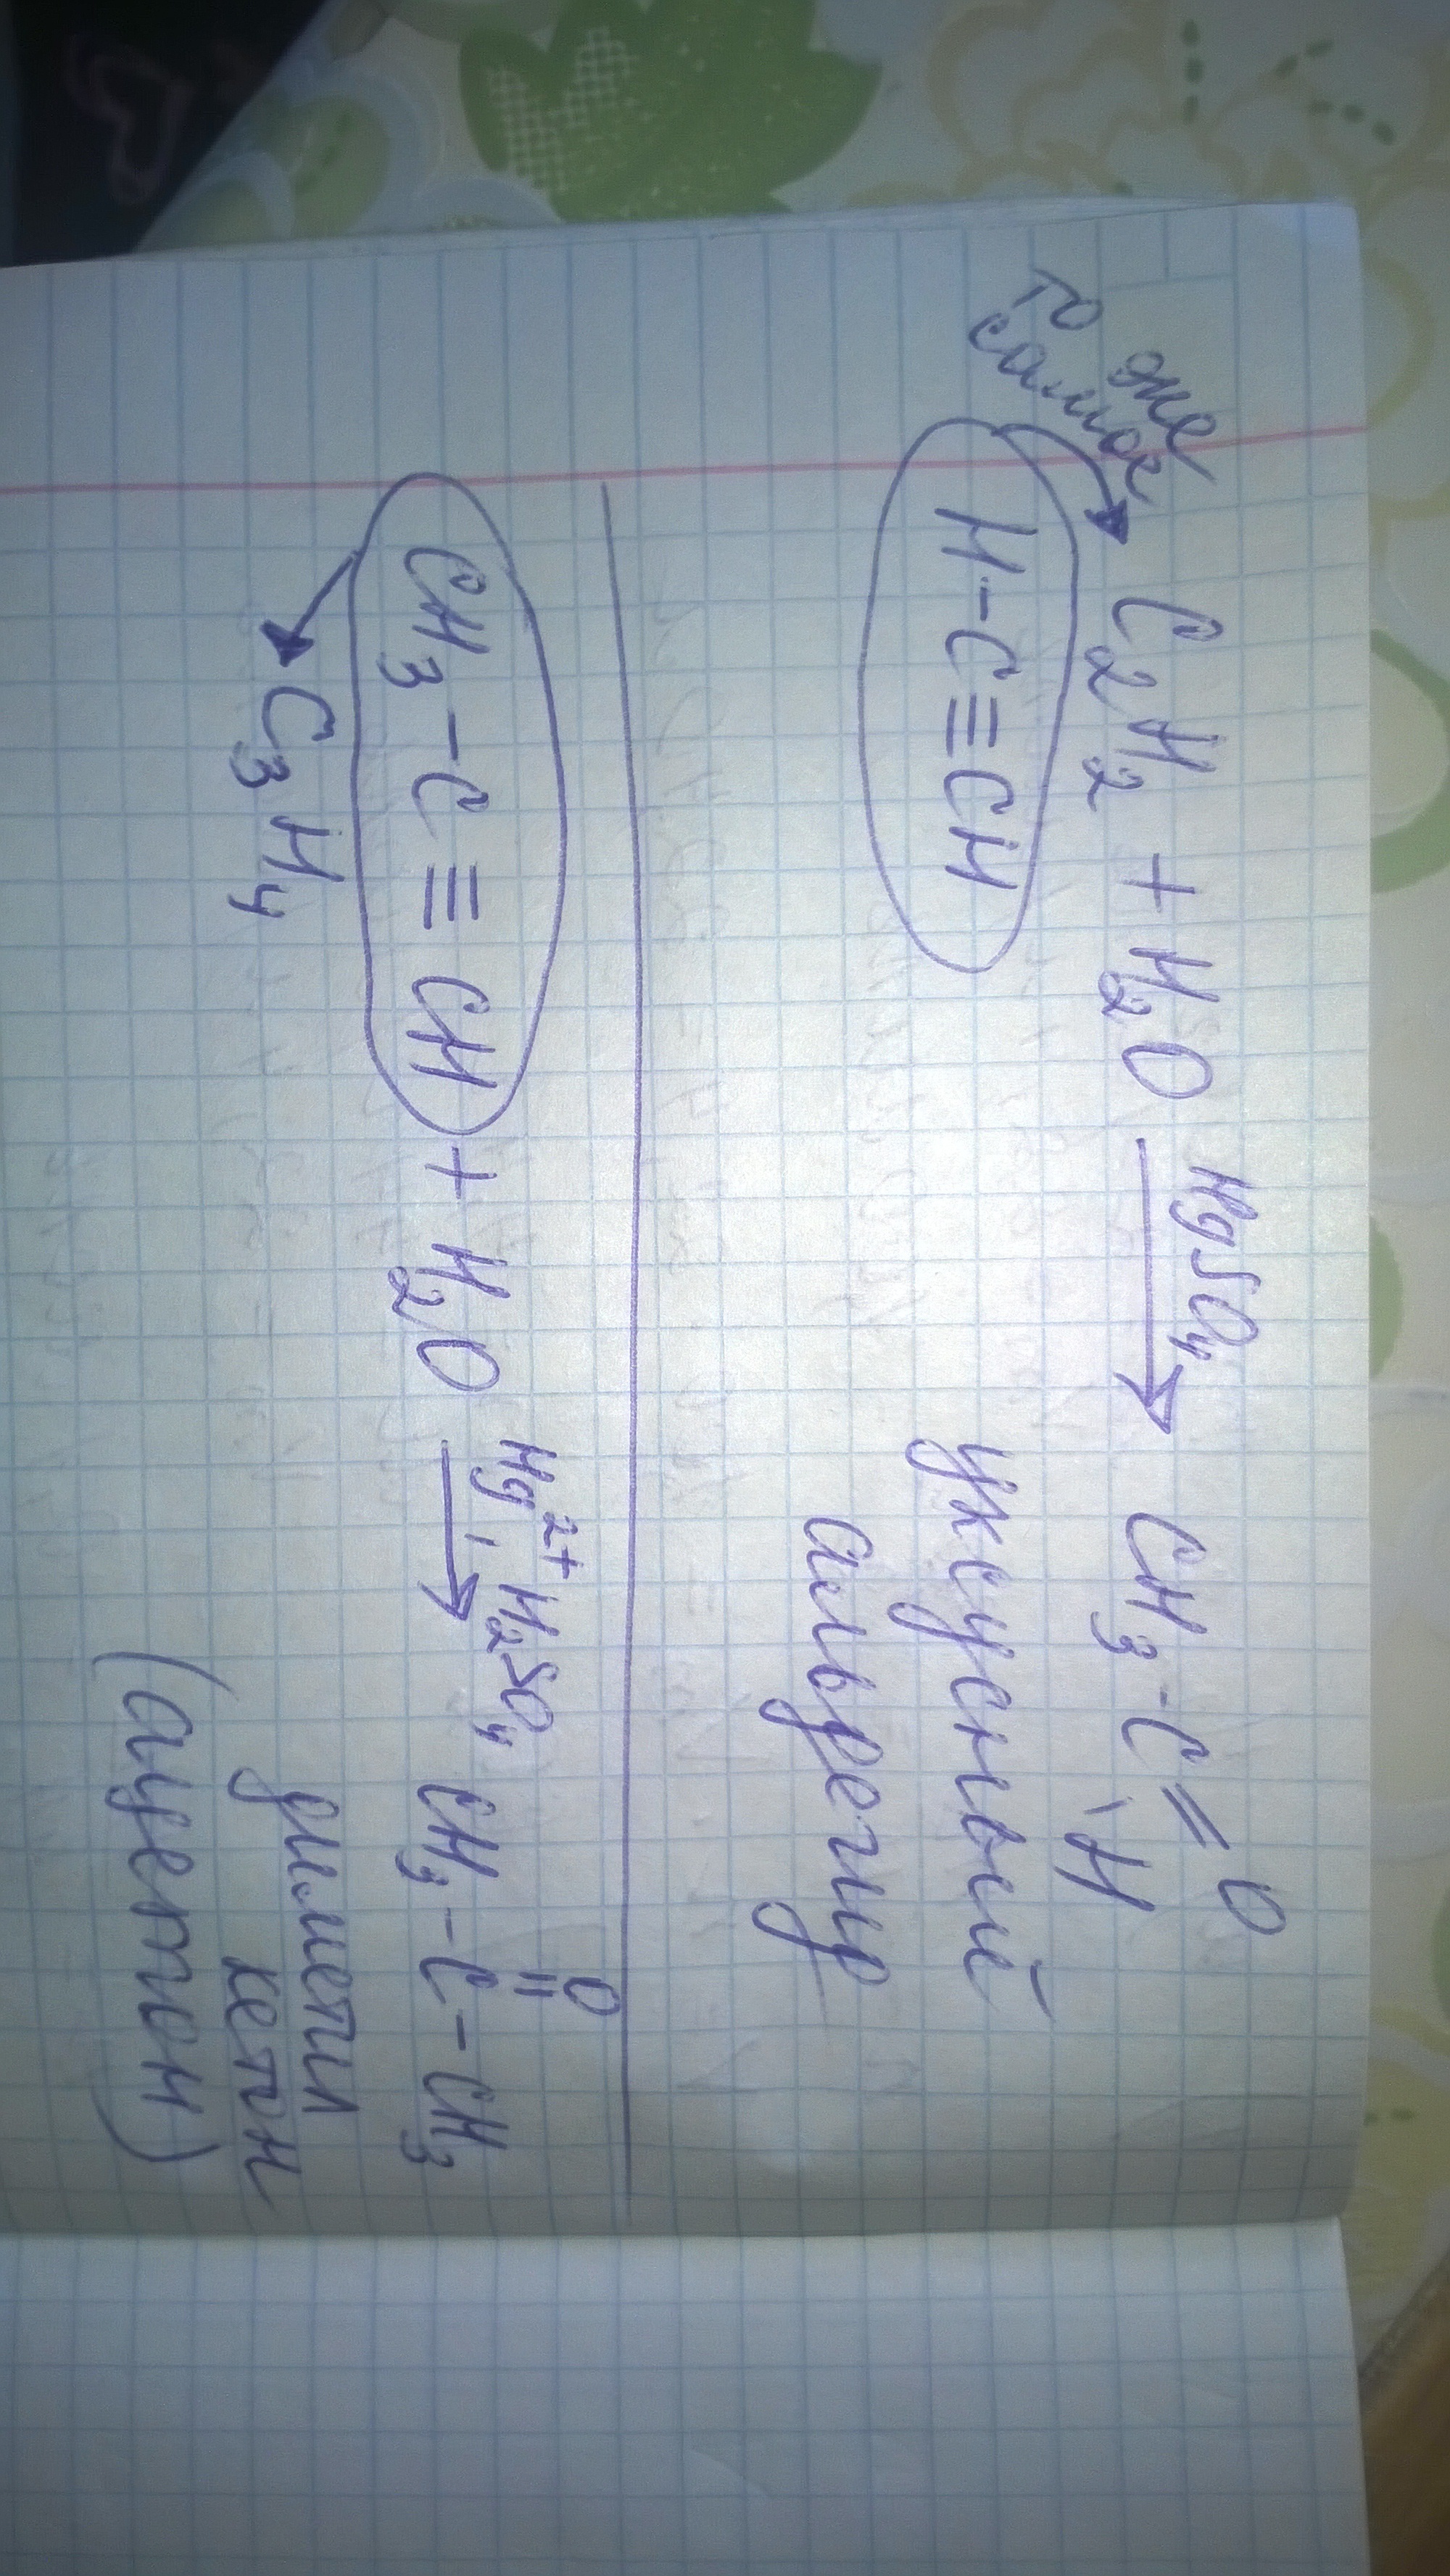 то же
самое
C₂H₂ + H₂O HgSO₄ → CH₃-C=O
H
H-C≡CH
уксусный
альдегид
O
CH₃-C≡CH + H₂O Hg²⁺, H₂SO₄ → CH₃-C-CH₃
C₃H₄
диметил
кетон
(ацетон)